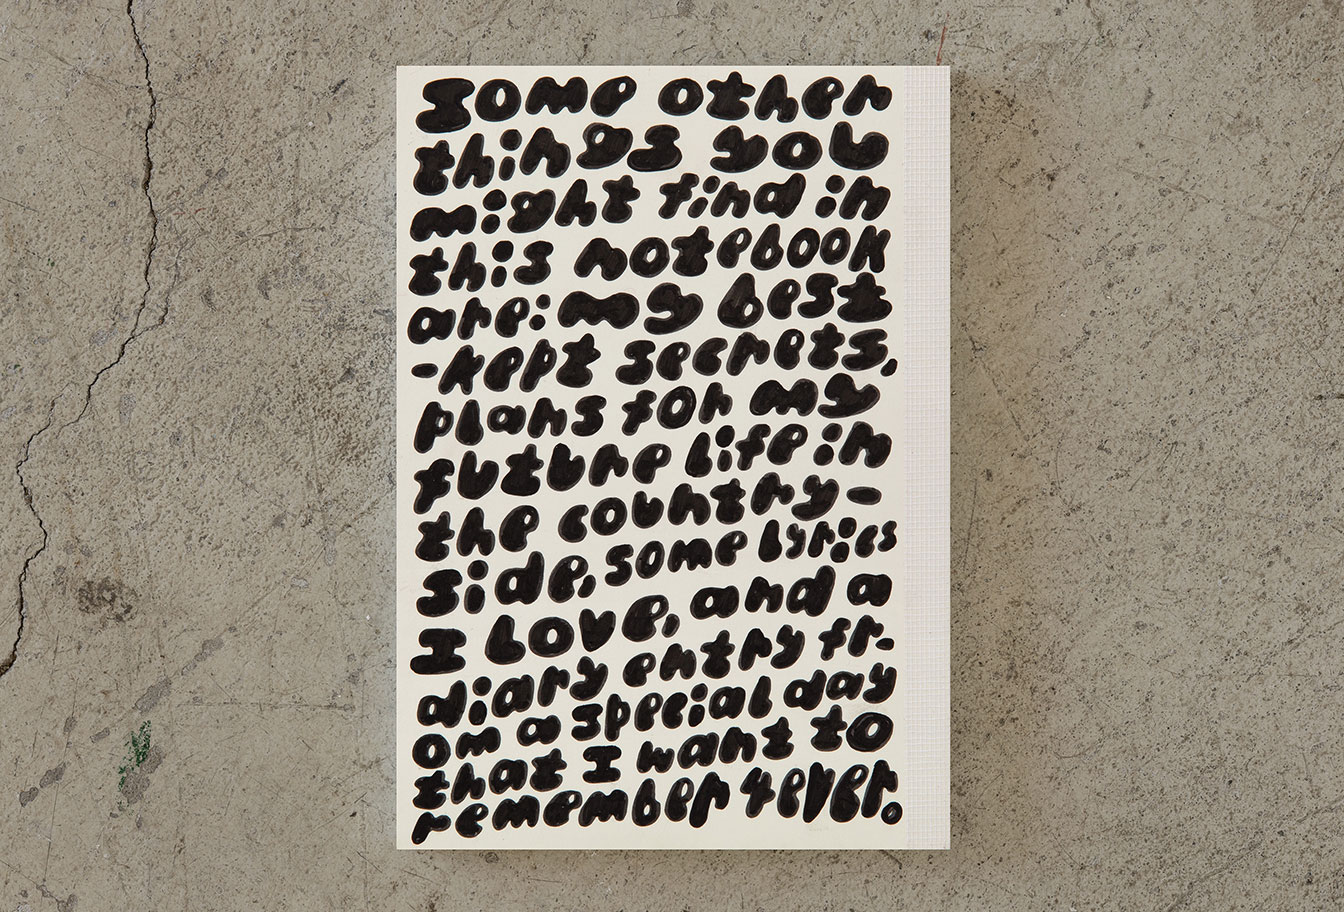 some other
things you
might find in
this notebook
are: my best
-kept secrets,
plans for my
future life in
the country-
side, some lyrics
I love, and a
diary entry fr-
om a special day
that I want to
remember 4ever.